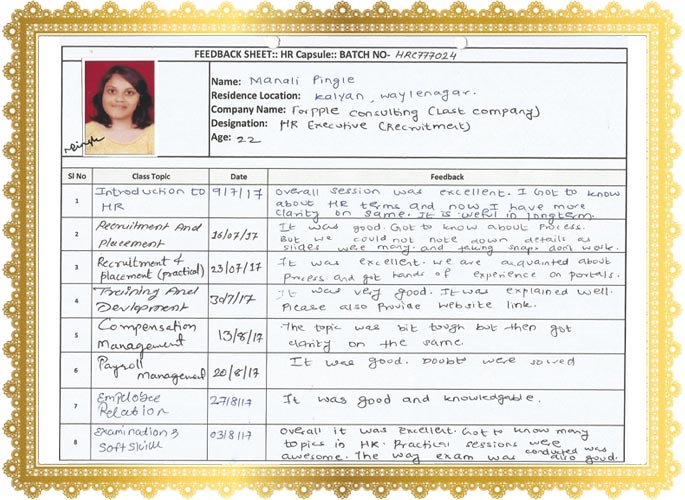 FEEDBACK SHEET:: HR Capsule:: BATCH NO- HRC777024
Name: Manali Pingle
Residence Location: Kalyan, Waylenagar.
Company Name: Tripple Consulting (Last company)
Designation: HR Executive (Recruitment)
Age: 22
Sl No Class Topic Date Feedback
1 Introduction to HR 9/7/17 Overall session was excellent. I Got to know
about HR terms and now I have more
clarity on same. It is useful in longterm.
2 Recruitment And Placement 16/07/17 It was good. Got to know about Process.
But we could not note down details as
slides were many. and taking snaps don't work.
3 Recruitment & Placement (practical) 23/07/17 It was excellent. we are aquanted about
Process and got hands of experience on portals.
4 Training And Development 30/7/17 It was very good. It was explained well.
Please also Provide website link.
5 Compensation Management 13/8/17 The topic was bit tough but then got
clarity on the same.
6 Payroll Management 20/8/17 It was good. Doubts were solved
7 Employee Relation 27/8/17 It was good and knowledgable.
8 Examination & Soft Skill 03/8/17 Overall it was Excellent. Got to know many
topics in HR. Practical sessions were
awesome. The way exam was conducted was also good.